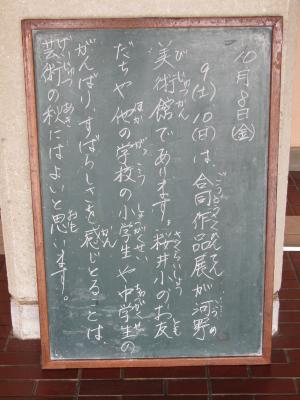 10月8日(金)
9(土)10(日)は、合同作品展が河野
美術館であります。桜井小のお友
だちや他の学校の小学生や中学生の
がんばり、すばらしさを感じとることは、
芸術の秋にはよいと思います。